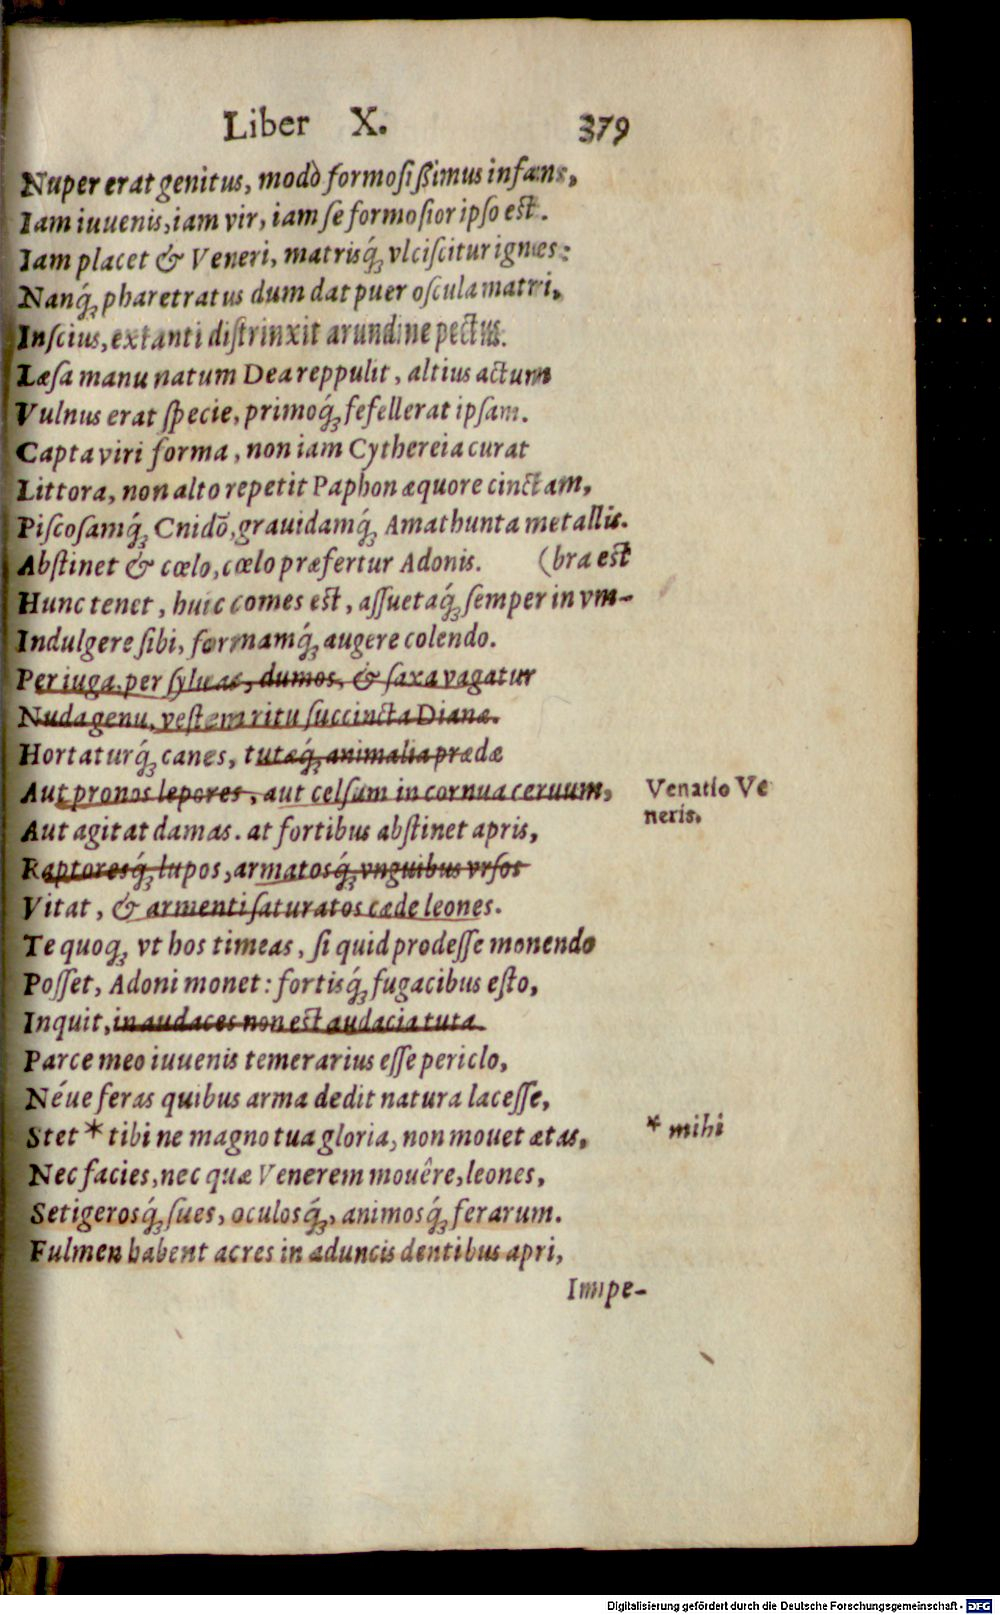 Liber X. 379
Nuper erat genitus, modò formosißimus infans,
Iam iuuenis, iam vir, iam se formosior ipso est.
Iam placet & Veneri, matrisq́; vlciscitur ignes:
Nanq́; pharetratus dum dat puer oscula matri,
Inscius, extanti distrinxit arundine pectus.
Læsa manu natum Dea reppulit, altius actum
Vulnus erat specie, primoq́; fefellerat ipsam.
Capta viri forma, non iam Cythereia curat
Littora, non alto repetit Paphon æquore cinctam,
Piscosamq́; Cnidō, grauidamq́; Amathunta metallis.
Abstinet & cœlo, cœlo præfertur Adonis. (bra est
Hunc tenet, huic comes est, assuetaq́; semper in vm-
Indulgere sibi, formamq́; augere colendo.
Per iuga, per syluas, dumos, & saxa vagatur
Nuda genu, vestem ritu succincta Dianæ.
Hortaturq́; canes, tutæq́; animalia prædæ
Aut pronos lepores, aut celsum in cornua ceruum,
Venatio Ve
neris.
Aut agitat damas. at fortibus abstinet apris,
Raptoresq́; lupos, armatosq́; vnguibus vrsos
Vitat, & armenti saturatos cæde leones.
Te quoq; vt hos timeas, si quid prodesse monendo
Posset, Adoni monet: fortisq́; fugacibus esto,
Inquit, in audaces non est audacia tuta.
Parce meo iuuenis temerarius esse periclo,
Néue feras quibus arma dedit natura lacesse,
Stet * tibi ne magno tua gloria, non mouet ætas,
* mihi
Nec facies, nec quæ Venerem mouêre, leones,
Setigerosq́; sues, oculosq́;, animosq́; ferarum.
Fulmen habent acres in aduncis dentibus apri,
Impe-
Digitalisierung gefördert durch die Deutsche Forschungsgemeinschaft - DFG